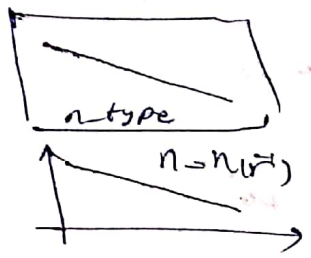 n-type
n = n(r⃗)